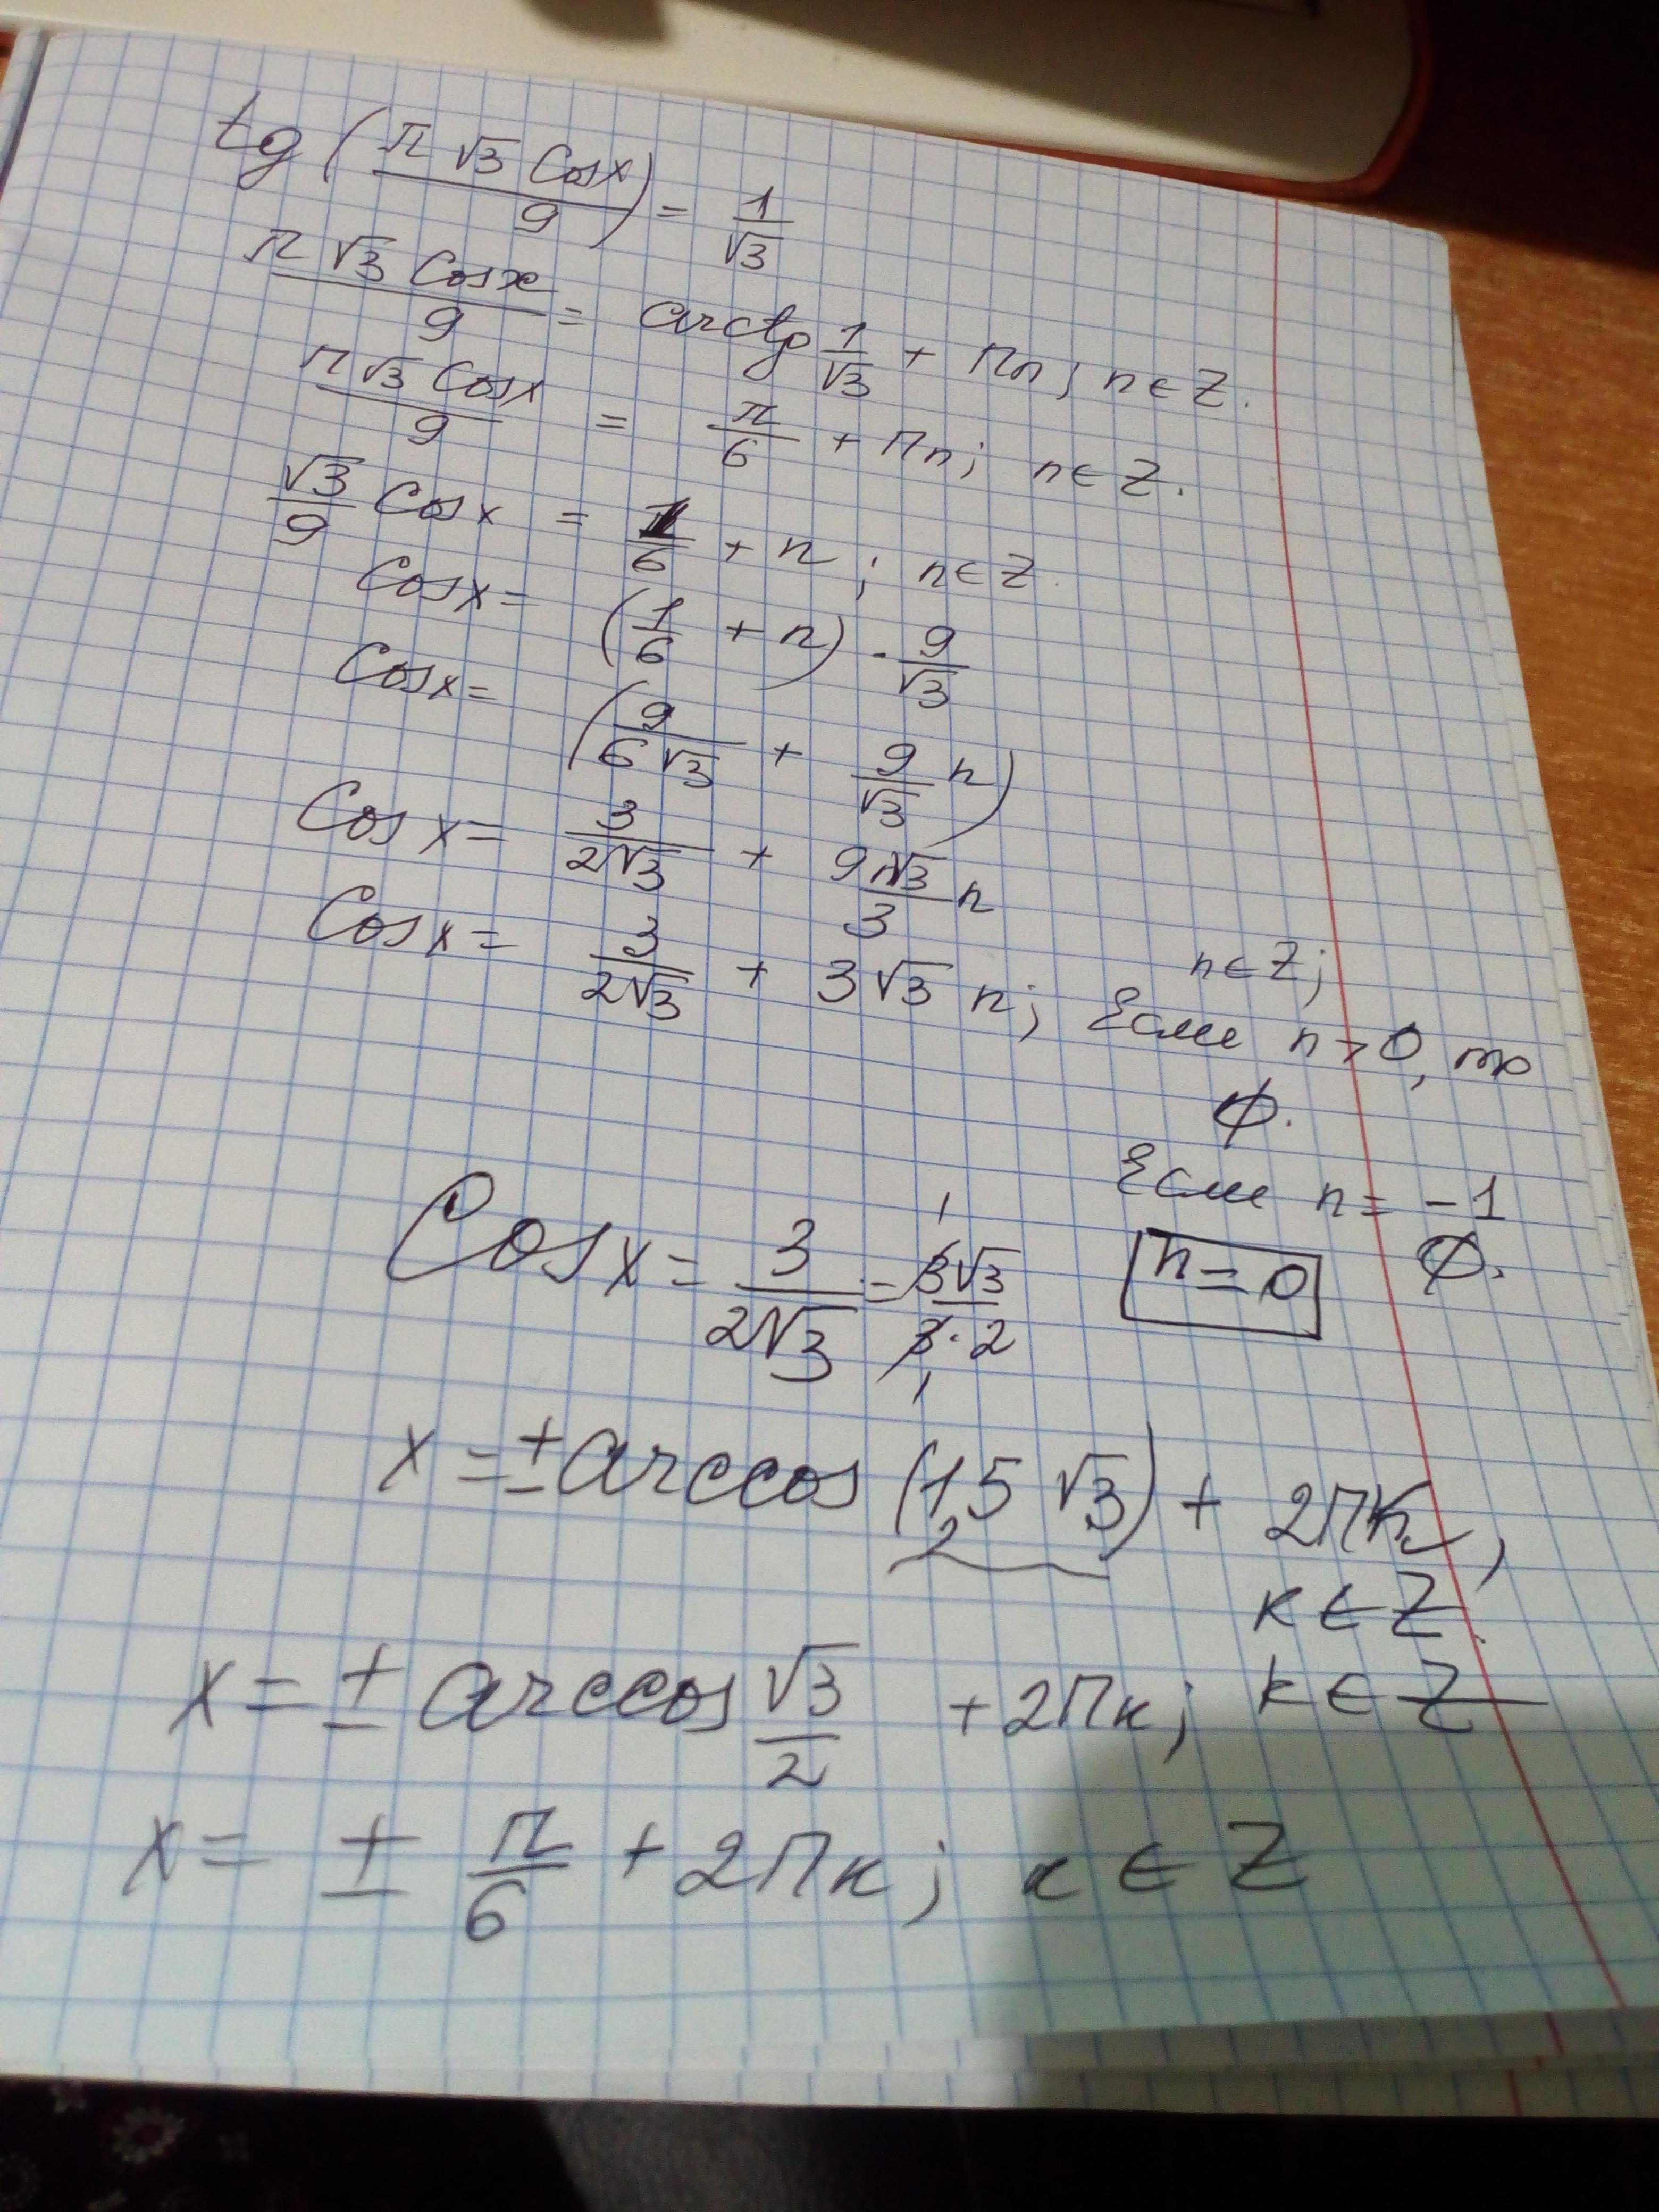 tg (π√3 Cosx / 9) = 1/√3
π√3 Cosx / 9 = arctg 1/√3 + Пn; n∈Z.
π√3 Cosx / 9 = π/6 + Пn; n∈Z.
√3/9 Cosx = 1/6 + n; n∈Z.
Cosx = (1/6 + n) · 9/√3
Cosx = (9/6√3 + 9/√3 n)
Cosx = 3/2√3 + 9√3/3 n
n∈Z;
Cosx = 3/2√3 + 3√3 n; Если n>0, то
∅.
Если n = -1
∅.
Cosx = 3/2√3 = 3√3/3·2
n=0
x = ± arccos (1,5√3) + 2Пк,
2
к∈Z.
x = ± arccos √3/2 + 2Пк; k∈Z
x = ± π/6 + 2Пк; к∈Z